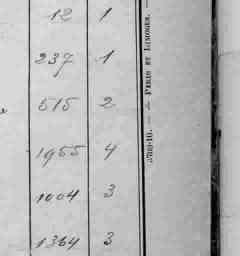 12 1
237 1
515 2
1955 4
1004 3
1364 3
PARIS ET LIMOGES. —